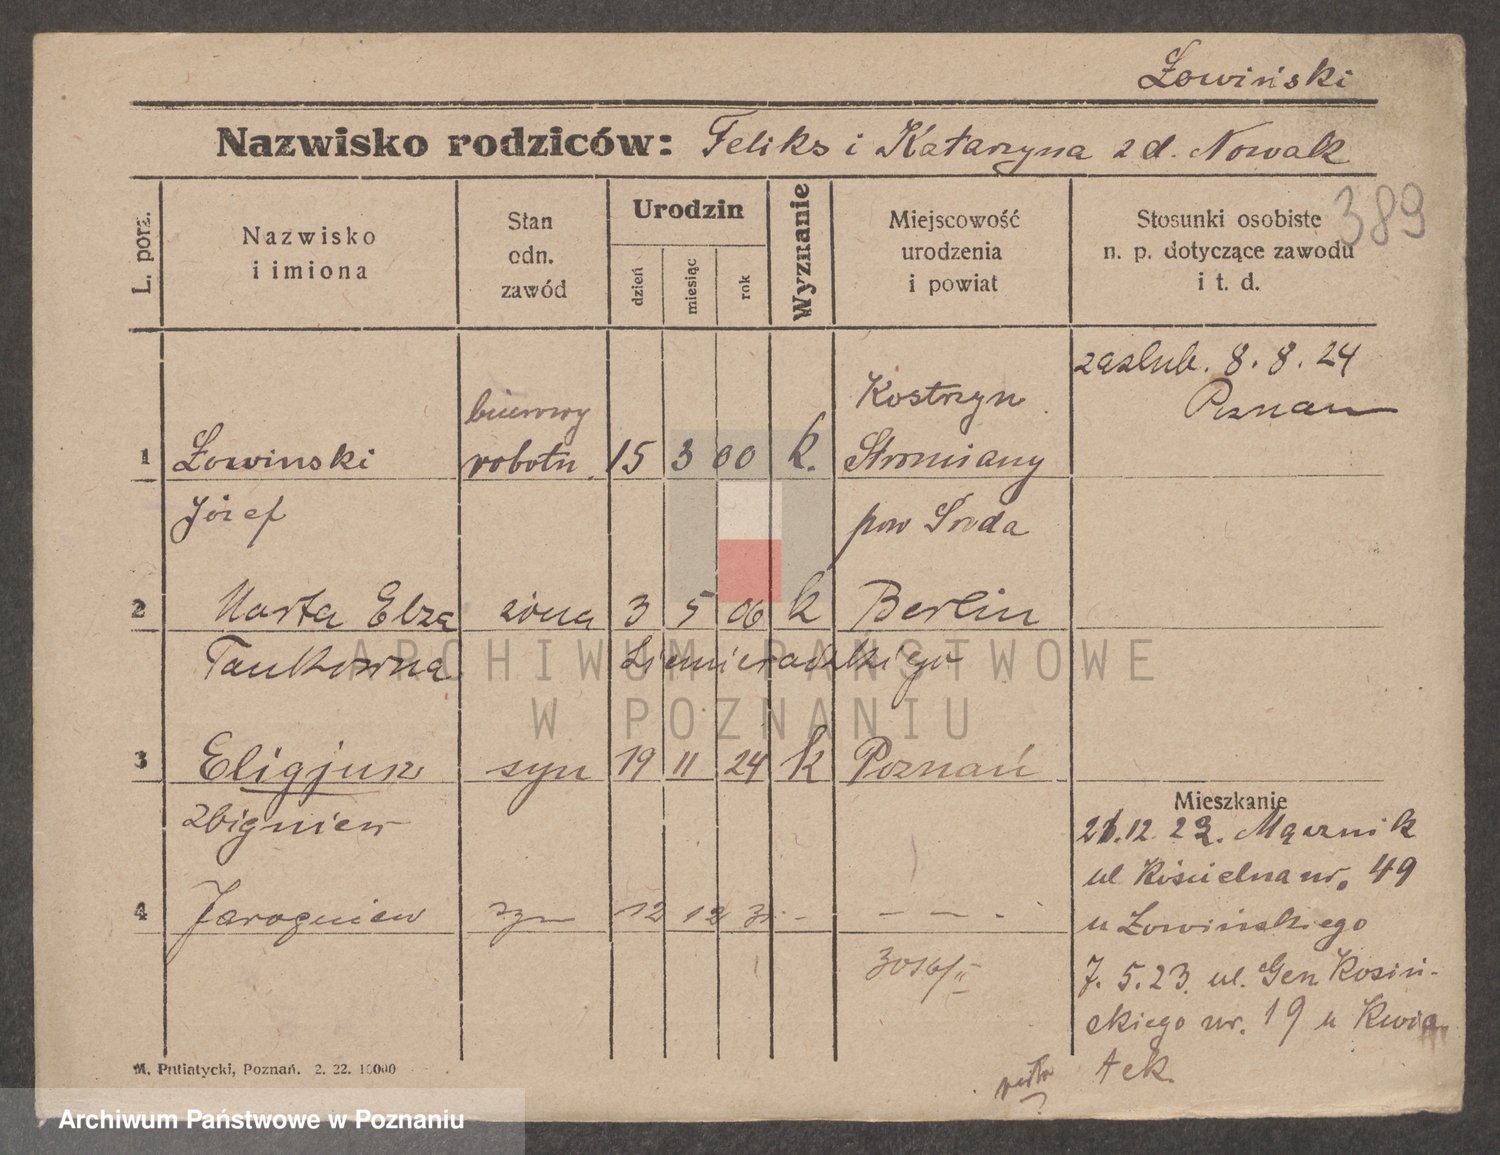 Łowiński
Nazwisko rodziców: Feliks i Katarzyna z d. Nowak
389
L. porz.
Nazwisko
i imiona
Stan
odn.
zawód
Urodzin
dzień
miesiąc
rok
Wyznanie
Miejscowość
urodzenia
i powiat
Stosunki osobiste
n. p. dotyczące zawodu
i t. d.
zaślub. 8. 8. 24
Poznań
biurowy Kostrzyn
1 Łowinski robotn. 15 3 00 k. Stromiany
Józef pow Środa
2 Marta Elza żona 3 5 06 k Berlin
3 Eligjusz syn 19 11 24 k Poznań
Zbigniew
4 Jarogniew syn 12 12 - - - -
Mieszkanie
21.12.22. Mącznik
ul Kościelna nr. 49
u Łowińskiego
7. 5. 23. ul. Gen Kosiń-
skiego nr. 19 u Kwia
tek.
M. Putiatycki, Poznań. 2. 22. 10000
ARCHIWUM PAŃSTWOWE
W POZNANIU
Archiwum Państwowe w Poznaniu